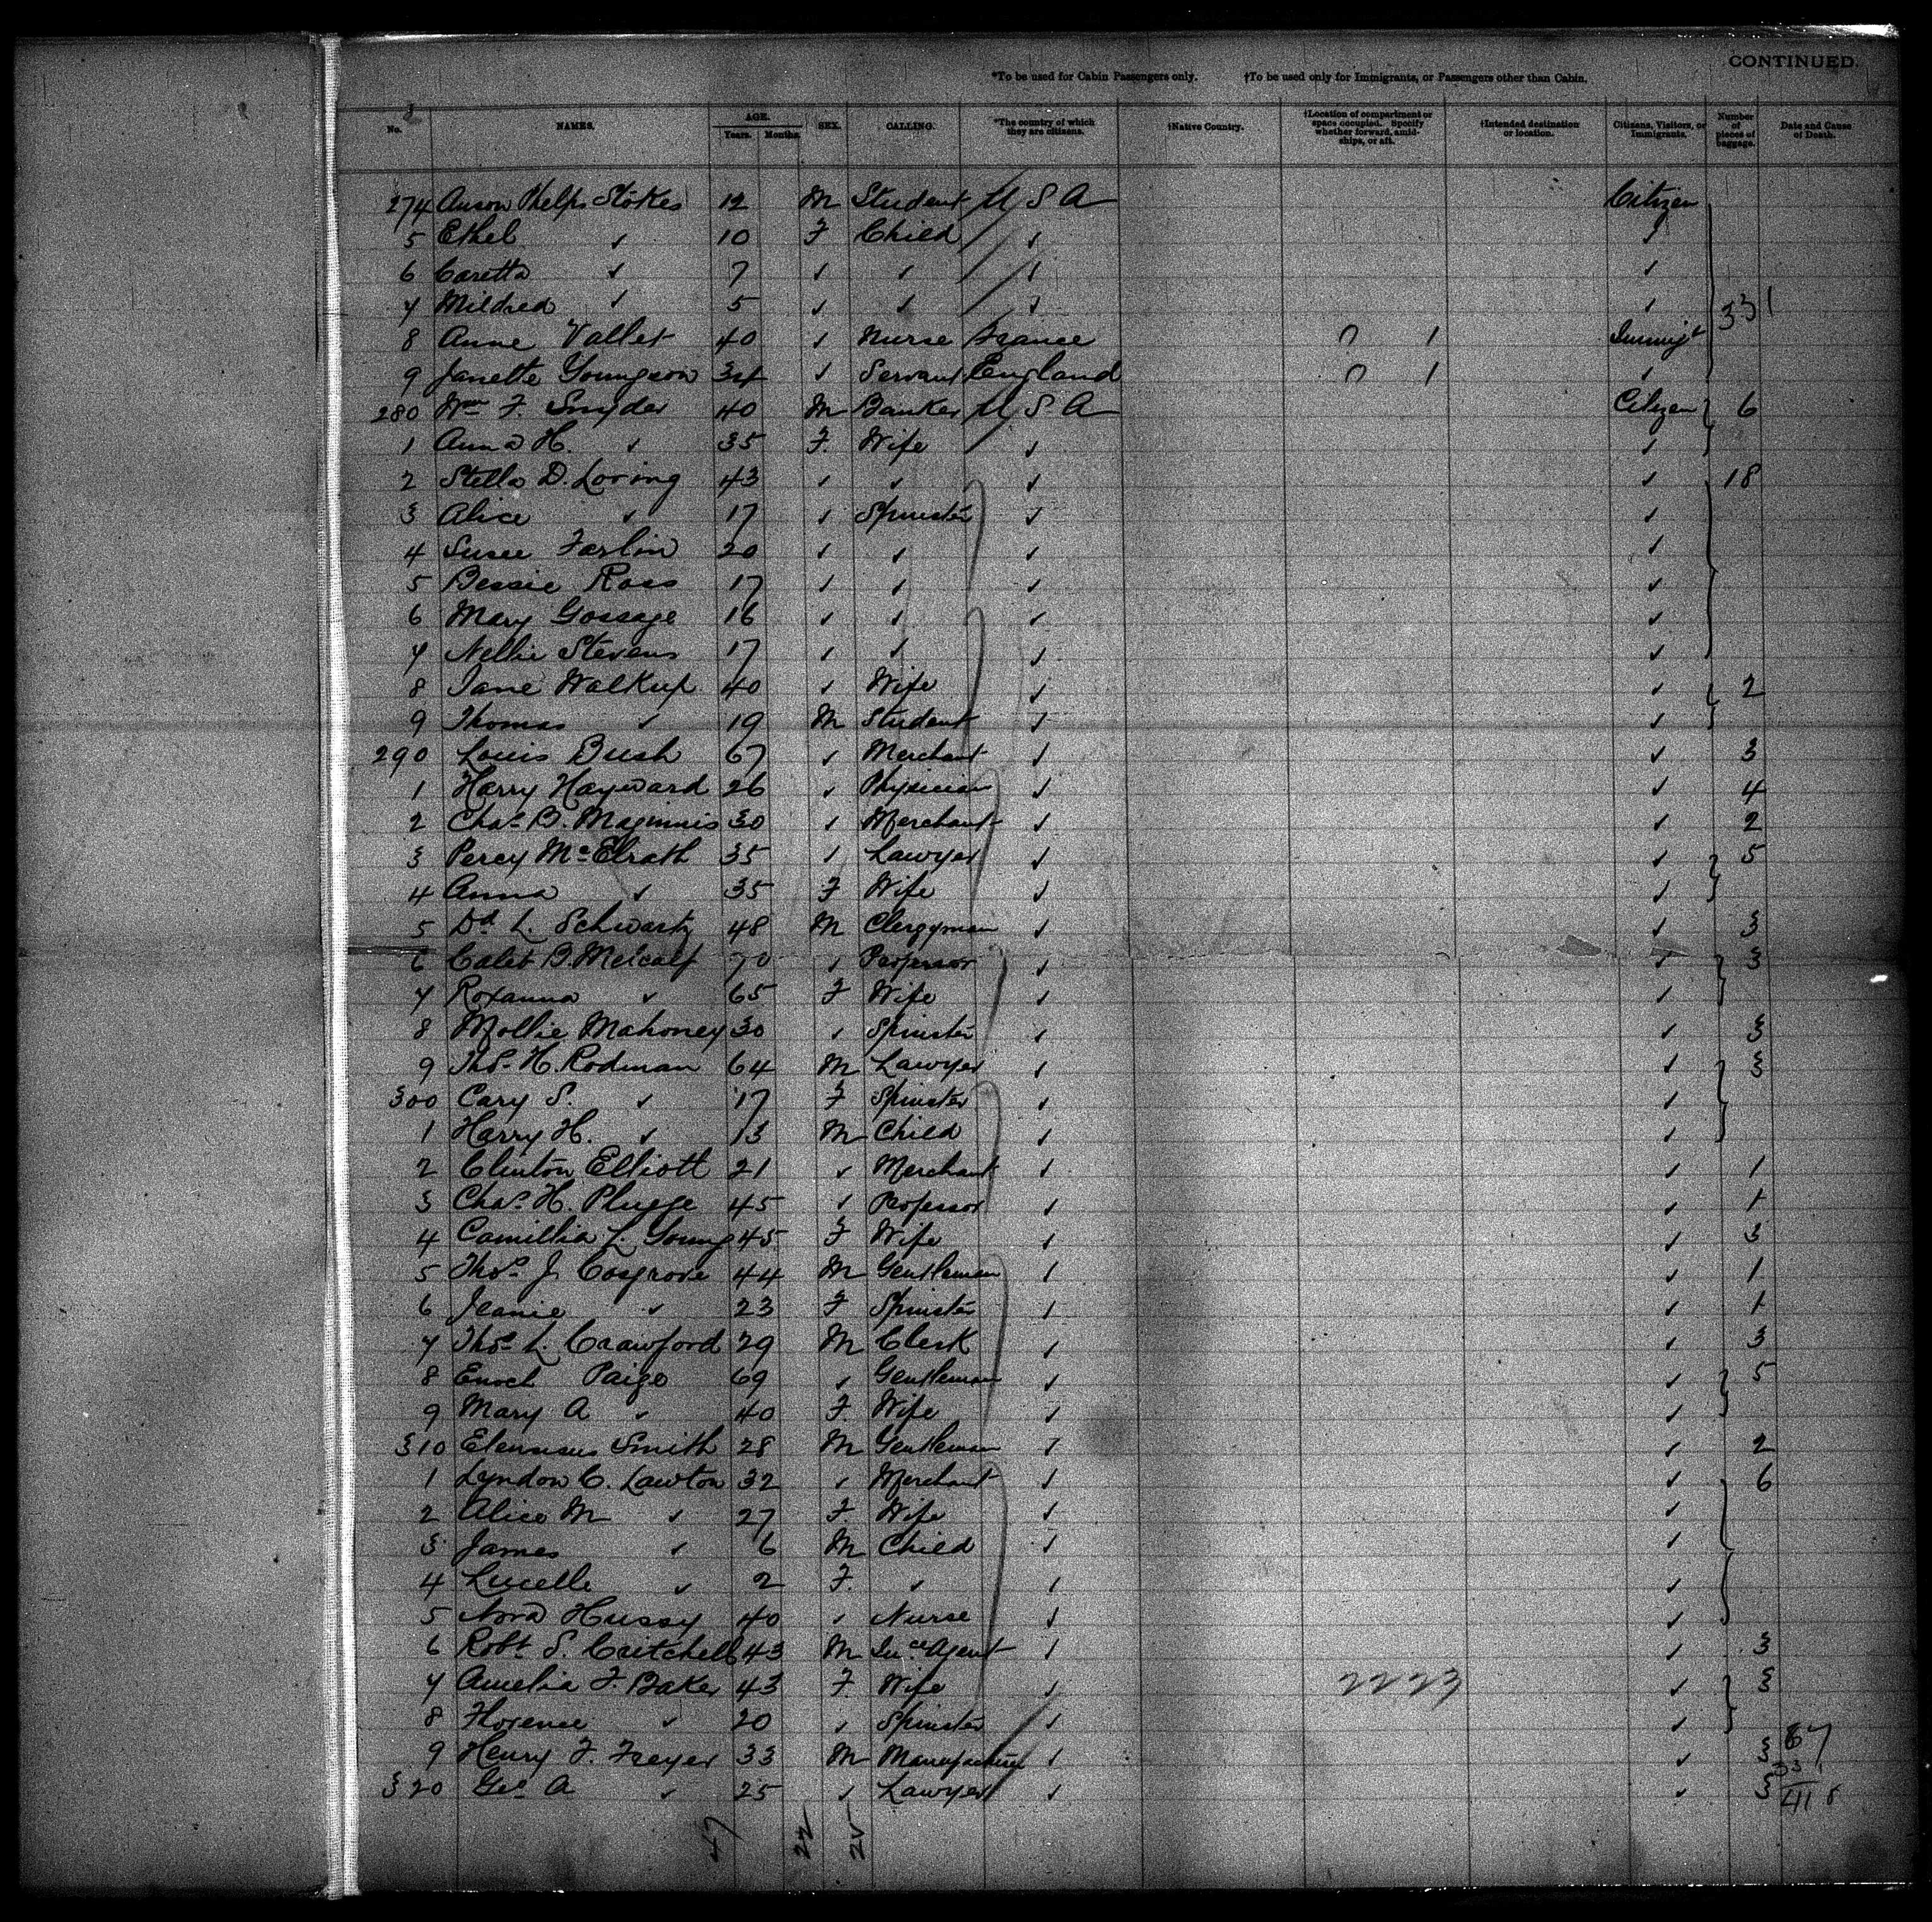 CONTINUED.
*To be used for Cabin Passengers only. †To be used only for Immigrants, or Passengers other than Cabin.
No. NAMES. AGE. Years. Months. SEX. CALLING. *The country of which they are citizens. †Native Country. †Location of compartment or space occupied. Specify whether forward, amidships, or aft. †Intended destination or location. Citizens, Visitors, or Immigrants. Number of pieces of baggage. Date and Cause of Death.
274 Anson Phelps Stokes 12 M Student U S A Citizen
5 Ethel ✓ 10 F Child ✓ ✓
6 Caretta ✓ 7 ✓ ✓ ✓ ✓
7 Mildred ✓ 5 ✓ ✓ ✓ ✓ 331
8 Anne Vallet 40 ✓ Nurse France 1 Immigt
9 Janette Youngson 34 ✓ Servant England 1 ✓
280 Wm F. Snyder 40 M Banker U S A Citizen 6
1 Anna H. ✓ 35 F. Wife ✓ ✓
2 Stella D. Loring 43 ✓ ✓ ✓ ✓ 18
3 Alice ✓ 17 ✓ Spinster ✓ ✓
4 Susee Farlin 20 ✓ ✓ ✓ ✓
5 Bessie Ross 17 ✓ ✓ ✓ ✓
6 Mary Gossage 16 ✓ ✓ ✓ ✓
7 Nellie Stevens 17 ✓ ✓ ✓ ✓
8 Jane Walkup 40 ✓ Wife ✓ ✓ 2
9 Thomas ✓ 19 M Student ✓ ✓
290 Louis Bush 67 ✓ Merchant ✓ ✓ 3
1 Harry Hayward 26 ✓ Physician ✓ ✓ 4
2 Chas B. Maginnis 30 ✓ Merchant ✓ ✓ 2
3 Percy McElrath 35 ✓ Lawyer ✓ ✓ 5
4 Anna ✓ 35 F Wife ✓ ✓
5 Dd L. Schwartz 48 M Clergyman ✓ ✓ 3
6 Caleb B. Metcalf 70 ✓ Professor ✓ ✓ 3
7 Roxanna ✓ 65 F Wife ✓ ✓
8 Mollie Mahoney 30 ✓ Spinster ✓ ✓ 3
9 Thos H. Rodman 64 M Lawyer ✓ ✓ 3
300 Cary S. ✓ 17 F Spinster ✓ ✓
1 Harry H. ✓ 13 M Child ✓ ✓
2 Clinton Elliott 21 ✓ Merchant ✓ ✓ 1
3 Chas H. Plugge 45 ✓ Professor ✓ ✓ 1
4 Camillia L. Young 45 F Wife ✓ ✓ 3
5 Thos J. Cosgrove 44 M Gentleman ✓ ✓ 1
6 Jeanie ✓ 23 F Spinster ✓ ✓ 1
7 Thos L. Crawford 29 M Clerk ✓ ✓ 3
8 Enoch Paige 69 ✓ Gentleman ✓ ✓ 5
9 Mary A ✓ 40 F. Wife ✓ ✓
310 Smith 28 M Gentleman ✓ ✓ 2
1 Lyndon C. Lawton 32 ✓ Merchant ✓ ✓ 6
2 Alice M ✓ 27 F. Wife ✓ ✓
3 James ✓ 6 M Child ✓ ✓
4 Lucelle ✓ 2 F. ✓ ✓ ✓
5 Nora Hussy 40 ✓ Nurse ✓ ✓
6 Robt S. Critchell 43 M Insce Agent ✓ ✓ 3
7 Amelia F. Baker 43 F. Wife ✓ 2223 ✓ 3
8 Florence ✓ 20 ✓ Spinster ✓ ✓
9 Henry F. Freyer 33 M Manufacturer ✓ ✓ 3 87
320 Geo A ✓ 25 ✓ Lawyer ✓ ✓ 3 331
418
47 22 25